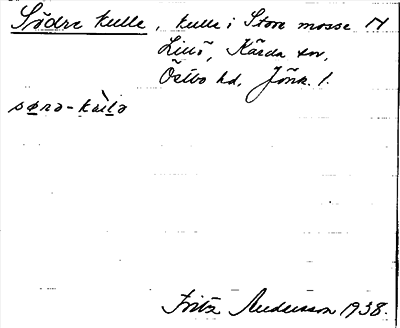 Södra kulle, kulle i Store mosse N
Linö, Kärda sn,
Östbo hd, Jönk. l.
sørə-kàlə
Fritz Andersson 1938.